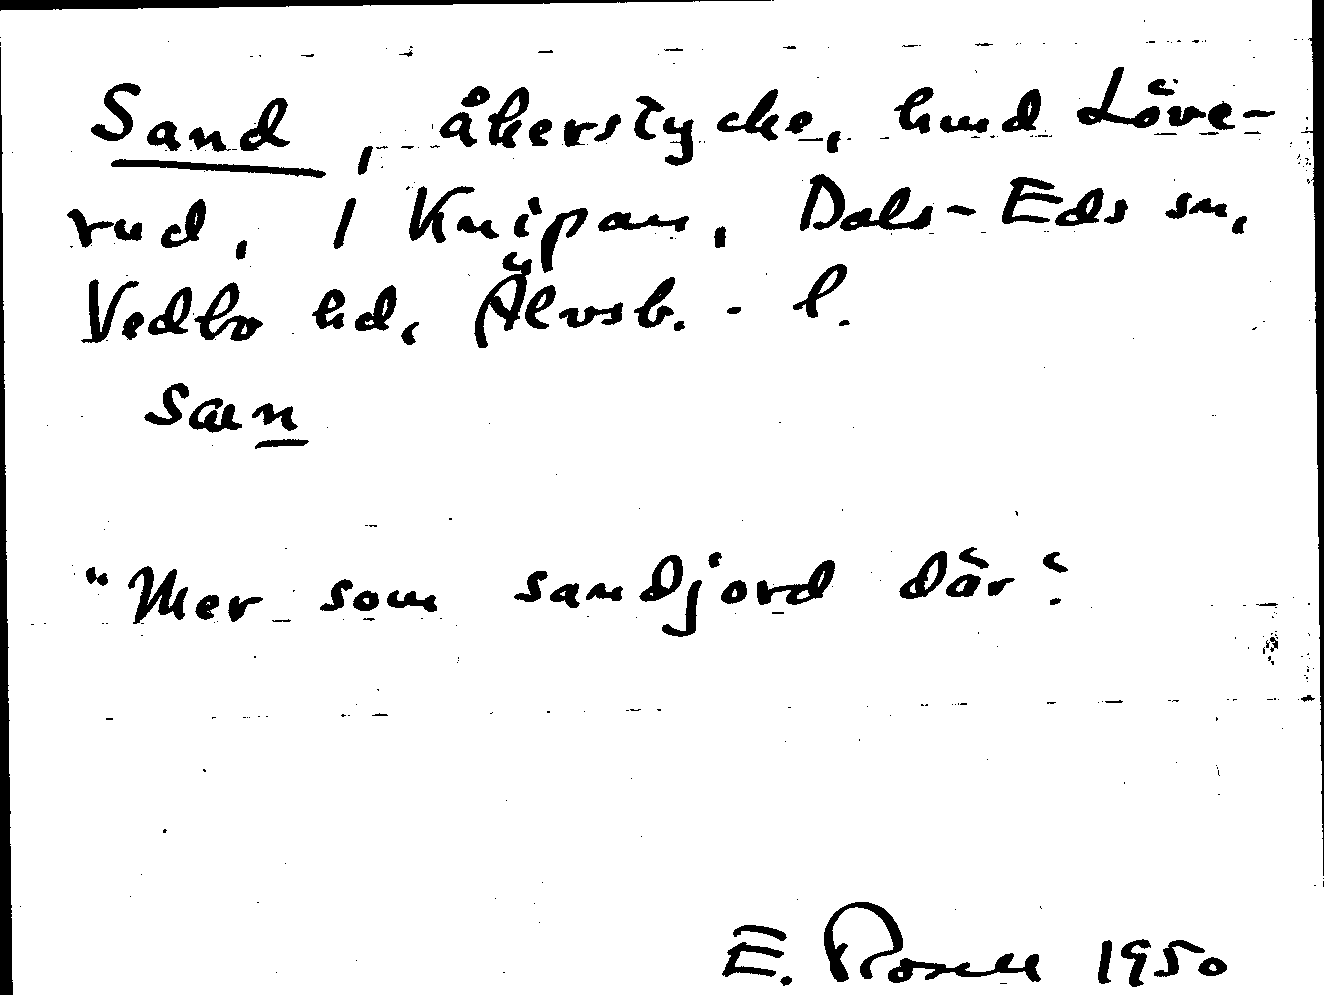 Sand, åkerstycke, hmd Löve-
rud, 1 Knipan, Dals-Eds sn,
Vedbo hd, Älvsb. - l.
sæn
"Mer som sandjord där".
E. Rosell 1950